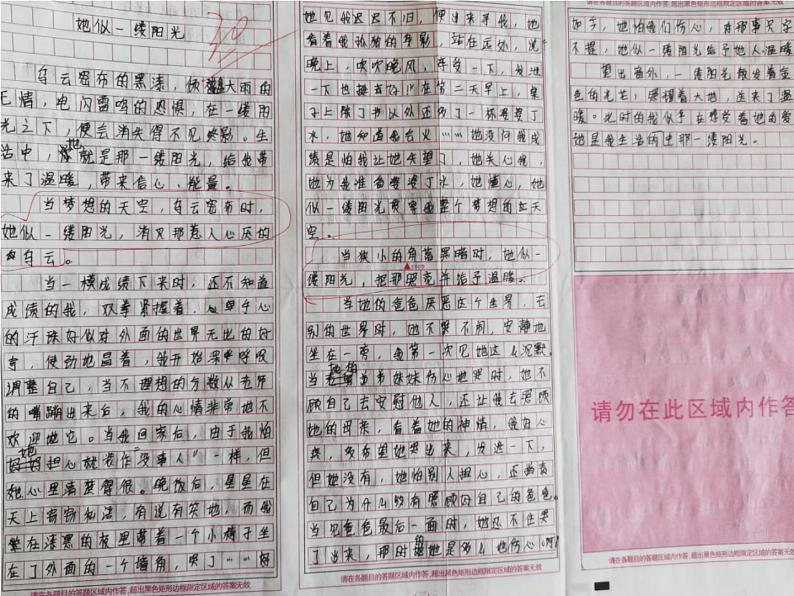 她似一缕阳光
30
乌云密布的黑漆,倾盆大雨的
无情,电闪雷鸣的恐惧,在一缕阳
光之下,便会消失得不见踪影。生
活中,她就是那一缕阳光,给我带
来了温暖,带来信心、能量。
当梦想的天空,乌云密布时,
她似一缕阳光,消灭那惹人心厌的
乌云。
当一模成绩下来时,还不知道
成绩的我,双拳紧握着,手心
的汗珠好似对外面的世界无比的好
奇,使劲地冒着,我开始深呼吸
调整自己,当不理想的分数从老师
的嘴蹦出来后,我的心情非常地不
欢迎它。当我回家后,由于我怕
她担心就装作“没事人”一样,但
她心里清楚得很。晚饭后,星星在
天上窃窃私语,有说有笑地,而我
坐在漆黑的夜里带着一个小椅子坐
在了外面的一个墙角,哭了……好
请在各题目的答题区域内作答,超出黑色矩形边框限定区域的答案无效
她见我迟迟不归,便出来寻我,她
看着我孤独的身影,站在远处,说
晚上,吹吹晚风,
一下也挺好在第二天早上,桌
子上除了书以外还多了一杯
水,她知道我上火……她没问我成
绩是怕我让她失望了,她关心我,
她为我准备了水,她懂心,她
似一缕阳光贯穿我整个梦想的天
空。
当狭小的角落黑暗时,她似一
缕阳光,把那照亮并给予温暖。
当她的爸爸厌恶这个世界,去
别的世界时,她不哭不闹,安静地
坐在一旁,我第一次见她这么沉默。
当她的弟弟妹妹伤心地哭时,她不
顾自己去安慰他人,还让我去照顾
她的母亲,看着她的神情,我
疼,多希望她哭出来,发泄一下,
但她没有,她怕别人担心,还
自己为什么没有照顾好自己的爸爸。
当见爸爸最后一面时,她忍不住哭
了出来,那时的她是多么地伤心啊!
请在各题目的答题区域内作答,超出黑色矩形边框限定区域的答案无效
请在各题目的答题区域内作答,超出黑色矩形边框限定区域的答案无效
如今,她怕我们伤心,对那事只字
不提,她似一缕阳光给予他人温暖
望出窗外,一缕阳光散发着金
色的光芒,照耀着大地,送来了温
暖。此时的我似乎在感受着她的爱
她是我生活的那一缕阳光。
请勿在此区域内作答
请在各题目的答题区域内作答,超出黑色矩形边框限定区域的答案无效